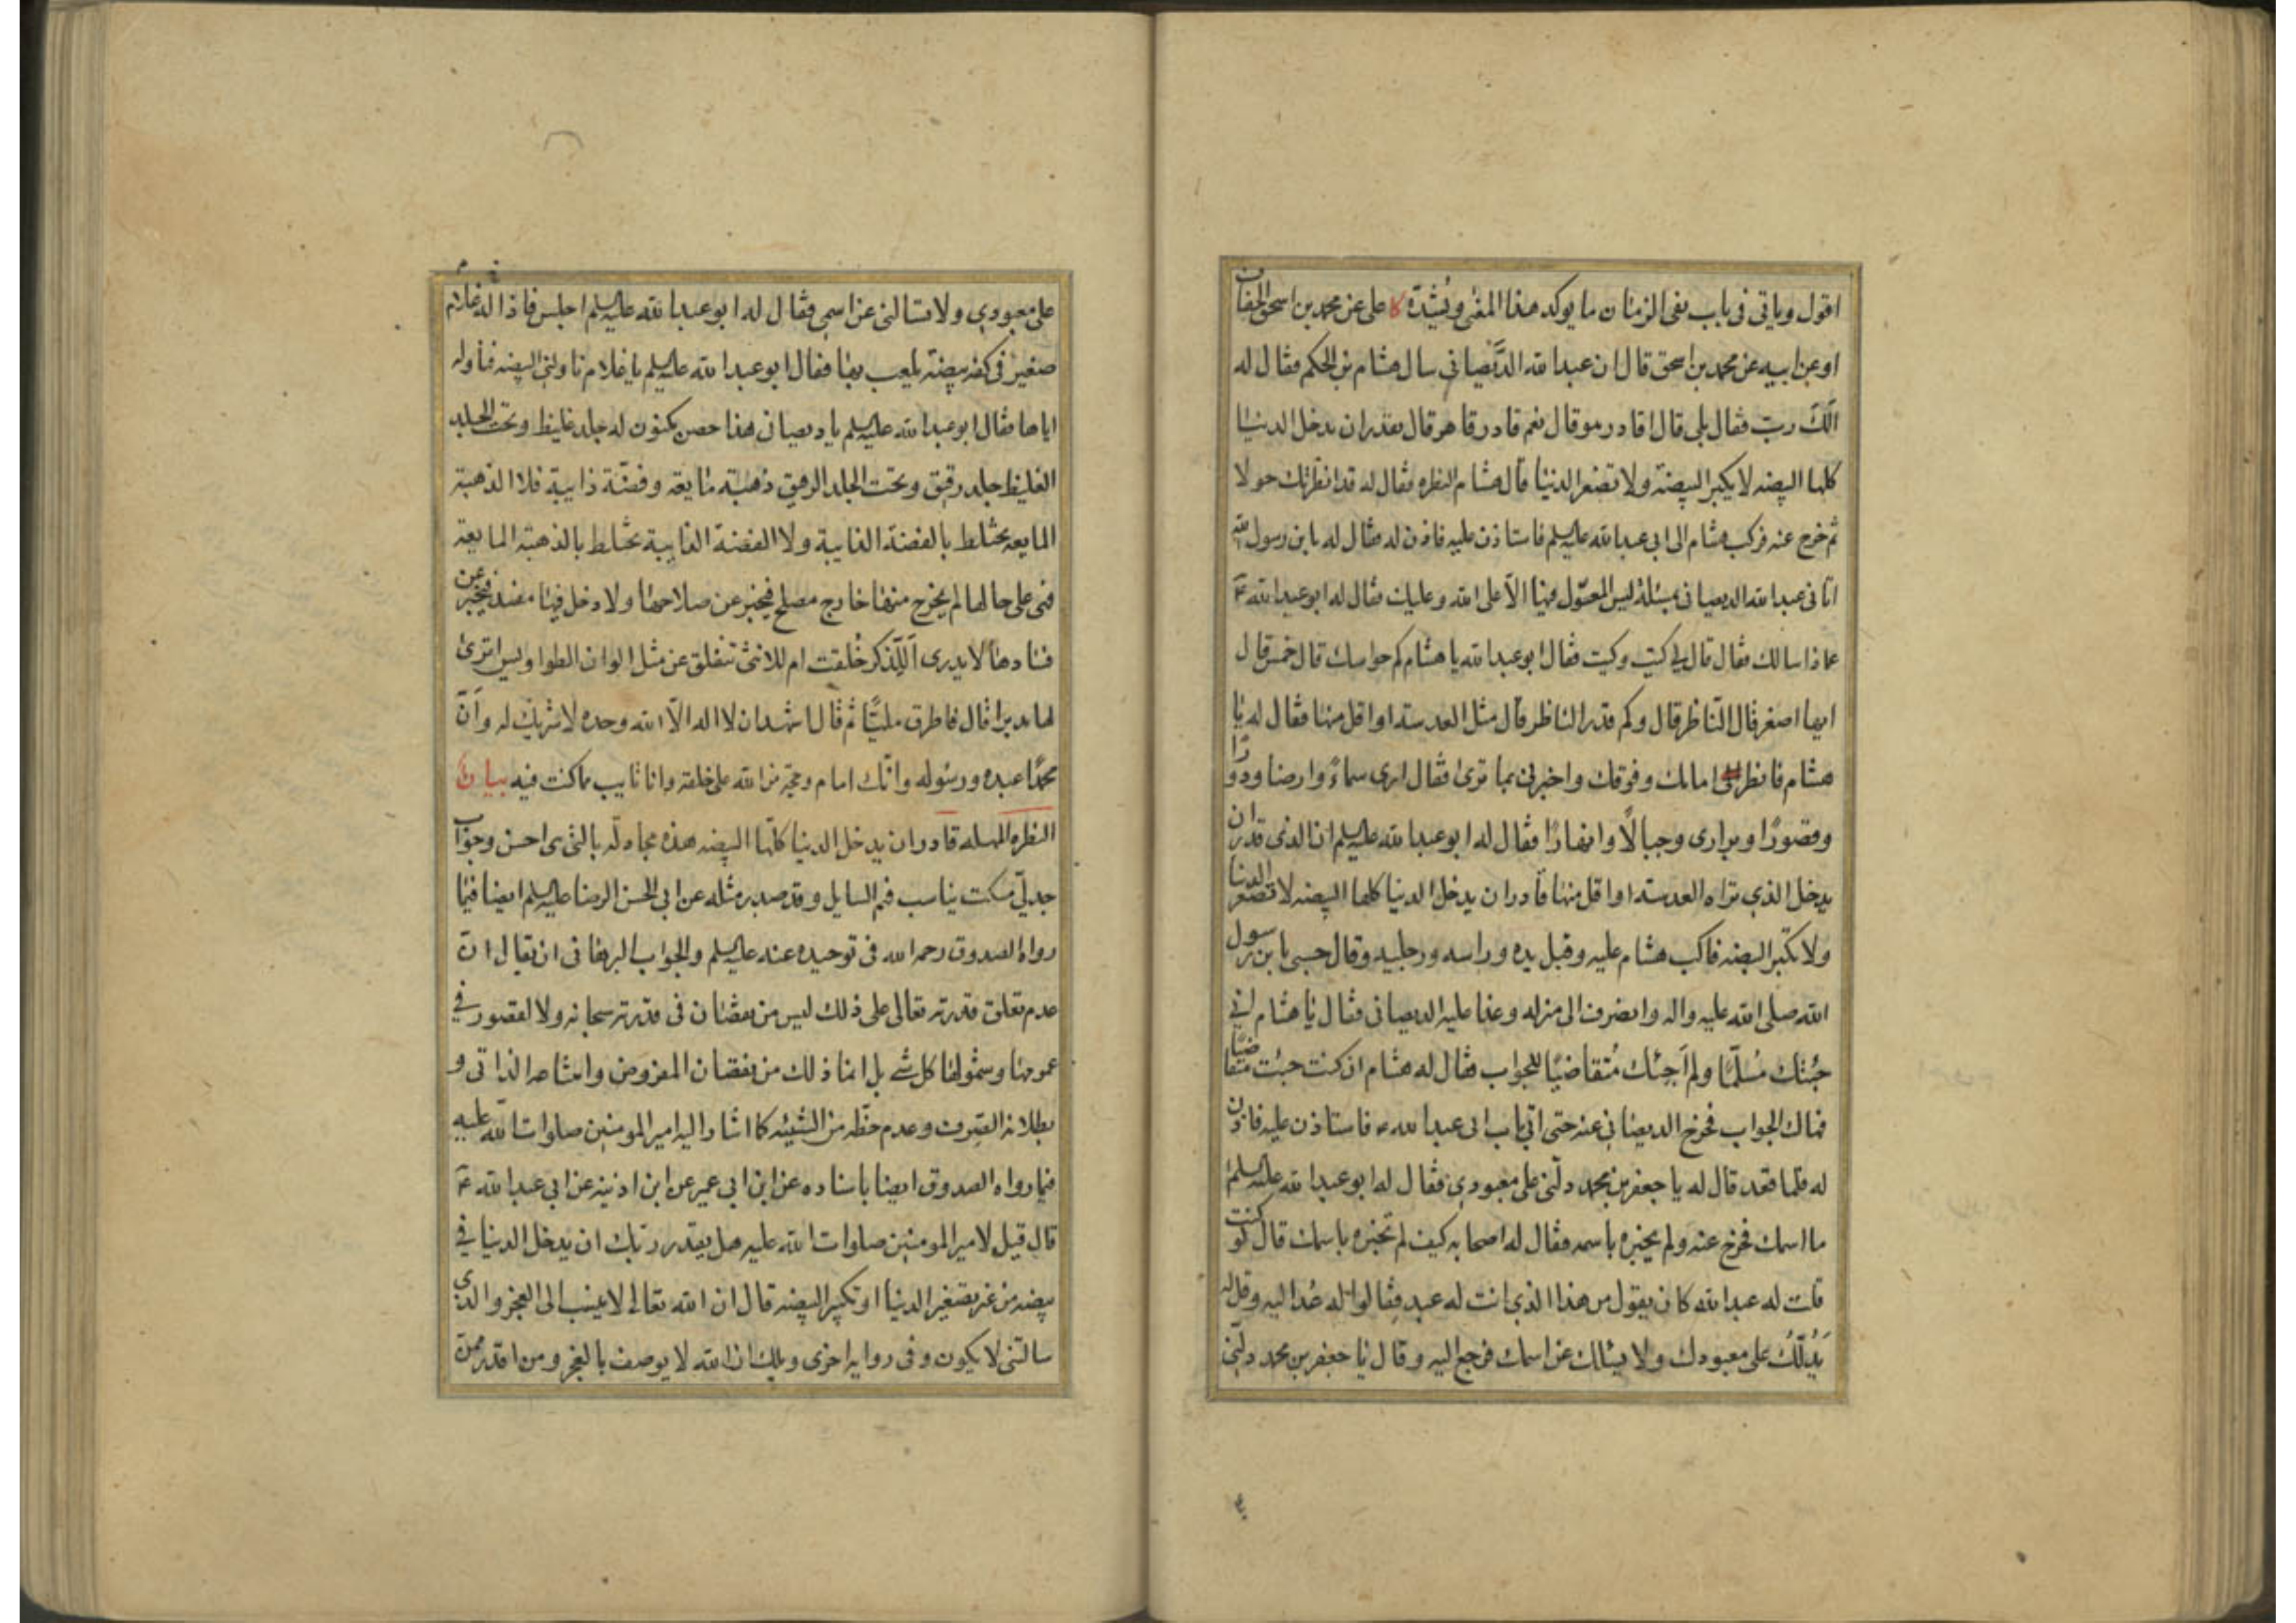 اقول وياتى فى باب نفى الزمان ما يوكد هذا المعنى ويشيّده كا على عن محمد بن اسحق الخفاف
او عن ابيه عن محمد بن اسحق قال ان عبد الله الدَّيصانى سال هشام بن الحكم فقال له
الَكَ ربّ فقال بلى قال اقادر هو قال نعم قادر قاهر قال يقدر ان يدخل الدنيا
كلها البيضه لا يكبر البيضة ولا تصغر الدنيا قال هشام النظره فقال له قد انظرتك حولا
ثم خرج عنه فركب هشام الى ابى عبد الله عليه السلم فاستاذن عليه فاذن له فقال له يا بن رسول الله
اتانى عبد الله الديصانى بمسئلة ليس المعوّل فيها الاّ على الله وعليك فقال له ابو عبد الله ع
عما ذا سالك فقال قال لى كيت وكيت فقال ابو عبد الله يا هشام كم حواسك قال خمس قال
ايها اصغر قال الناظر قال وكم قدر الناظر قال مثل العدسة او اقل منها فقال له يا
هشام فانظر امامك وفوقك واخبرنى بما ترى فقال ارى سماءً وارضا ودورًا
وقصورًا وبرارى وجبالًا وانهارًا فقال له ابو عبد الله عليه السلم ان الذى قدر ان
يدخل الذى تراه العدسة او اقل منها قادر ان يدخل الدنيا كلها البيضه لا تصغر الدنيا
ولا تكبر البيضه فاكب هشام عليه وقبل يده وراسه ورجليه وقال حسبى يا بن رسول
الله صلى الله عليه واله وانصرف الى منزله وغدا عليه الديصانى فقال يا هشام انى
جئتك مُسلّمًا ولم اَجئك مُتقاضيًا للجواب فقال له هشام ان كنت جئت متقاضيًا
فهاك الجواب فخرج الديصانى عنه حتى اتى باب ابى عبد الله ع فاستاذن عليه فاذن
له فلما قعد قال له يا جعفر بن محمد دلّنى على معبودى فقال له ابو عبد الله عليه السلم
ما اسمك فخرج عنه ولم يخبره باسمه فقال له اصحابه كيف لم تخبره باسمك قال لو كنت
قلت له عبد الله كان يقول من هذا الذى انت له عبد فقالوا له عُد اليه وقل له
يَدُلّكَ على معبودك ولا يسالك عن اسمك فرجع اليه وقال يا جعفر بن محمد دلّنى
على معبودى ولا تسالنى عن اسمى فقال له ابو عبد الله عليه السلم اجلس فاذا له غلام
صغير فى كفه بيضة يلعب بها فقال ابو عبد الله عليه السلم يا غلام ناولنى البيضه فناوله
اياها فقال ابو عبد الله عليه السلم يا ديصانى هذا حصن مكنون له جلد غليظ وتحت الجلد
الغليظ جلد رقيق وتحت الجلد الرقيق ذهبة مايعة وفضّة ذايبة فلا الذهبة
المايعه تختلط بالفضة الذايبة ولا الفضة الذايبة تختلط بالذهبة المايعة
فهى على حالها لم يخرج منها خارج مصلح فيخبر عن صلاحها ولا دخل فيها مفسد فيخبر عن
فسادها لا يدرى اَللّذكر خُلقت ام للانثى تنفلق عن مثل الوان الطواويس اترى
لها مدبرا قال فاطرق مليًّا ثم قال اشهد ان لا اله الاّ الله وحده لا شريك له وانّ
محمدًا عبده ورسوله وانّك امام وحجّة من الله على خلقه وانا تايب مما كنت فيه بيان
النظره المهله قادر ان يدخل الدنيا كلّها البيضه هذه مجادلة بالتى هى احسن وجواب
جدلىّ مسكت يناسب فهم السايل وقد صدر مثله عن ابى الحسن الرضا عليه السلم ايضا فيما
رواه الصدوق رحمه الله فى توحيده عنه عليه السلم والجواب البرهانى ان يقال ان
عدم تعلق قدرته تعالى على ذلك ليس من نقصان فى قدرته سبحانه ولا لقصور فى
عمومها وشمولها كل شئ بل انما ذلك من نقصان المفروض وامتناعه الذاتى و
بطلانه الصرف وعدم حظّه من الشيئيه كما اشار اليه امير المومنين صلوات الله عليه
فيما رواه الصدوق ايضا باسناده عن ابن ابى عمير عن ابن اذينه عن ابى عبد الله ع
قال قيل لامير المومنين صلوات الله عليه هل يقدر ربّك ان يدخل الدنيا فى
بيضه من غير تصغير الدنيا او تكبير البيضه قال ان الله تعالى لا ينسب الى العجز والذى
سالتنى لا يكون وفى روايه اخرى ويلك ان الله لا يوصف بالعجز ومن اقدر ممن